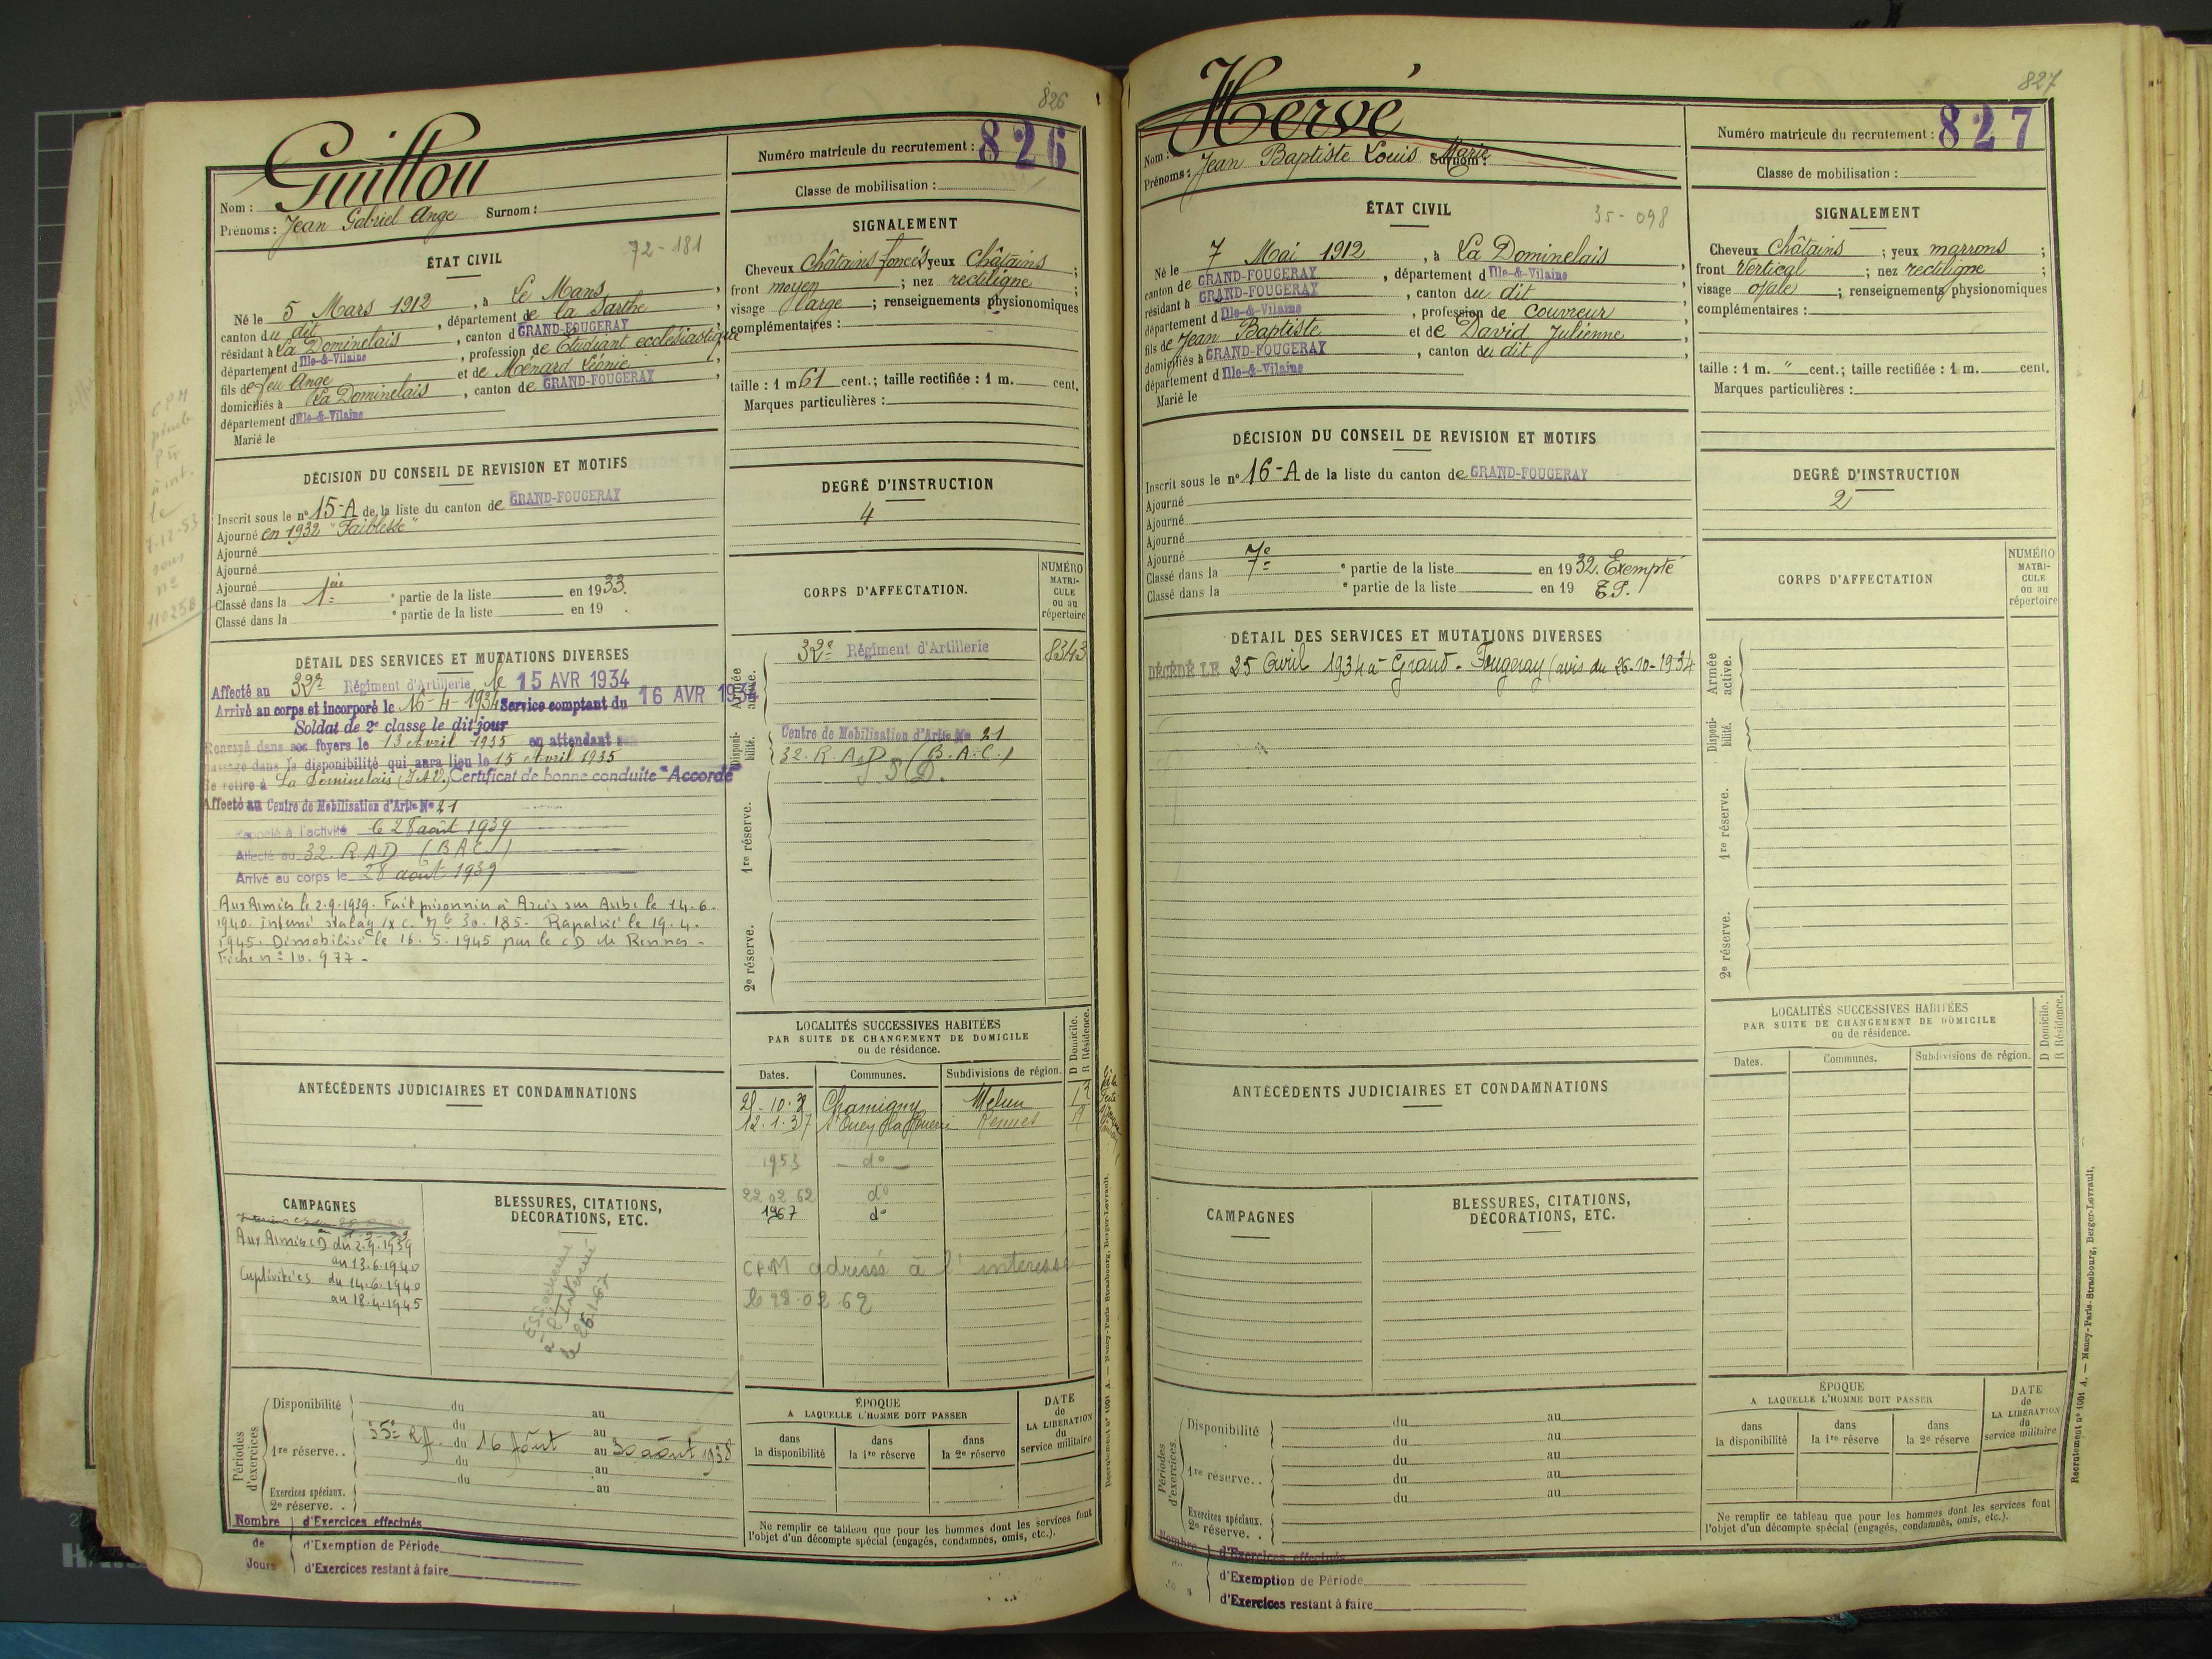 826
Guillou
Nom :
Prénoms : Jean Gabriel Ange Surnom :
Numéro matricule du recrutement : 826
Classe de mobilisation :
ÉTAT CIVIL
72-181
Né le 5 Mars 1912, à Le Mans,
canton du dit, département de la Sarthe
résidant à La Dominelais, canton d GRAND-FOUGERAY
département d Ille-&-Vilaine, profession de Etudiant ecclésiastique
fils de feu Ange et de Ménard Léonie,
domiciliés à La Dominelais, canton de GRAND-FOUGERAY
département d Ille-&-Vilaine
Marié le
SIGNALEMENT
Cheveux Châtains foncés yeux Châtains ;
front moyen ; nez rectiligne ;
visage large ; renseignements physionomiques
complémentaires :
taille : 1 m 61 cent. ; taille rectifiée : 1 m. cent.
Marques particulières :
DÉCISION DU CONSEIL DE REVISION ET MOTIFS
Inscrit sous le n° 15-A de la liste du canton de GRAND-FOUGERAY
Ajourné en 1932 "Faiblesse"
Ajourné
Ajourné
Ajourné
Classé dans la 1ère ° partie de la liste en 1933.
Classé dans la ° partie de la liste en 19 .
DEGRÉ D'INSTRUCTION
4
CORPS D'AFFECTATION.
NUMÉRO
MATRI-
CULE
ou au
répertoire
Armée active.
32e Régiment d'Artillerie 8343
Disponi-
bilité.
Centre de Mobilisation d'Artie No 21
32. R.A.D (B.A.C.)
1re réserve.
2e réserve.
DÉTAIL DES SERVICES ET MUTATIONS DIVERSES
Affecté au 32e Régiment d'Artillerie le 15 AVR 1934
Arrivé au corps et incorporé le 16-4-1934 Service comptant du 16 AVR 1934
Soldat de 2e classe le dit jour
Renvoyé dans ses foyers le 13 Avril 1935 en attendant son
passage dans la disponibilité qui aura lieu le 15 Avril 1935
Se retire à La Dominelais (I.&V.) Certificat de bonne conduite "Accordé"
Affecté au Centre de Mobilisation d'Artie No 21
Rappelé à l'activité le 28 août 1939
Affecté au 32. R.A.D (B A C)
Arrivé au corps le 28 août 1939
Aux Armées le 2.9.1939. Fait prisonnier à Arcis sur Aube le 14.6.
1940. interné stalag IX c. No 30.185. Rapatrié le 19.4.
1945. Démobilisé le 16.5.1945 par le CD de Rennes.
Fiche n° 10.977 -
LOCALITÉS SUCCESSIVES HABITÉES
PAR SUITE DE CHANGEMENT DE DOMICILE
ou de résidence.
D Domicile.
R Résidence.
Dates. Communes. Subdivisions de région.
Chamigny Melun
12.1.37 Rennes
1953 - do -
22 02 62 do
1967 do
CPM adressé à l'intéressé
le 28-02 62
ANTÉCÉDENTS JUDICIAIRES ET CONDAMNATIONS
CAMPAGNES
Aux Armées CD du 2.9.1939
au 13.6.1940
Captivité CS du 14.6.1940
au 18.4.1945
BLESSURES, CITATIONS,
DÉCORATIONS, ETC.
Périodes d'exercices
Disponibilité du au
du au
1re réserve. . du 16 Août au 30 août 1938
du au
du au
Exercices spéciaux.
2e réserve. .
Nombre de Jours
d'Exercices effectués
d'Exemption de Période
d'Exercices restant à faire
ÉPOQUE
A LAQUELLE L'HOMME DOIT PASSER
dans la disponibilité
dans la 1re réserve
dans la 2e réserve
DATE
de
LA LIBÉRATION
du
service militaire
Ne remplir ce tableau que pour les hommes dont les services font
l'objet d'un décompte spécial (engagés, condamnés, omis, etc.).
Recrutement n° 1001 A. — Nancy-Paris-Strasbourg, Berger-Levrault.
827
Hervé
Nom :
Prénoms : Jean Baptiste Louis Marie Surnom :
Numéro matricule du recrutement : 827
Classe de mobilisation :
ÉTAT CIVIL
35-098
Né le 7 Mai 1912, à La Dominelais,
canton de GRAND-FOUGERAY, département d Ille-&-Vilaine
résidant à GRAND-FOUGERAY, canton du dit,
département d Ille-&-Vilaine, profession de couvreur
fils de Jean Baptiste et de David Julienne,
domiciliés à GRAND-FOUGERAY, canton du dit,
département d Ille-&-Vilaine
Marié le
SIGNALEMENT
Cheveux Châtains ; yeux marrons ;
front Vertical ; nez rectiligne ;
visage ovale ; renseignements physionomiques
complémentaires :
taille : 1 m. " cent. ; taille rectifiée : 1 m. cent.
Marques particulières :
DÉCISION DU CONSEIL DE REVISION ET MOTIFS
Inscrit sous le n° 16-A de la liste du canton de GRAND-FOUGERAY
Ajourné
Ajourné
Ajourné
Ajourné
Classé dans la 7e ° partie de la liste en 1932. Exempté
Classé dans la ° partie de la liste en 19 T.P.
DEGRÉ D'INSTRUCTION
2
CORPS D'AFFECTATION
NUMÉRO
MATRI-
CULE
ou au
répertoire
Armée active.
Disponi-
bilité.
1re réserve.
2e réserve.
DÉTAIL DES SERVICES ET MUTATIONS DIVERSES
DÉCÉDÉ LE 25 Avril 1934 à Grand-Fougeray (avis du 26-10-1934
LOCALITÉS SUCCESSIVES HABITÉES
PAR SUITE DE CHANGEMENT DE DOMICILE
ou de résidence.
D Domicile.
R Résidence.
Dates. Communes. Subdivisions de région.
ANTÉCÉDENTS JUDICIAIRES ET CONDAMNATIONS
CAMPAGNES
BLESSURES, CITATIONS,
DÉCORATIONS, ETC.
Périodes d'exercices
Disponibilité du au
du au
1re réserve. . du au
du au
du au
Exercices spéciaux.
2e réserve. .
Nombre
d'Exercices effectués
d'Exemption de Période
d'Exercices restant à faire
ÉPOQUE
A LAQUELLE L'HOMME DOIT PASSER
dans la disponibilité
dans la 1re réserve
dans la 2e réserve
DATE
de
LA LIBÉRATION
du
service militaire
Ne remplir ce tableau que pour les hommes dont les services font
l'objet d'un décompte spécial (engagés, condamnés, omis, etc.).
Recrutement n° 1001 A. — Nancy-Paris-Strasbourg, Berger-Levrault.